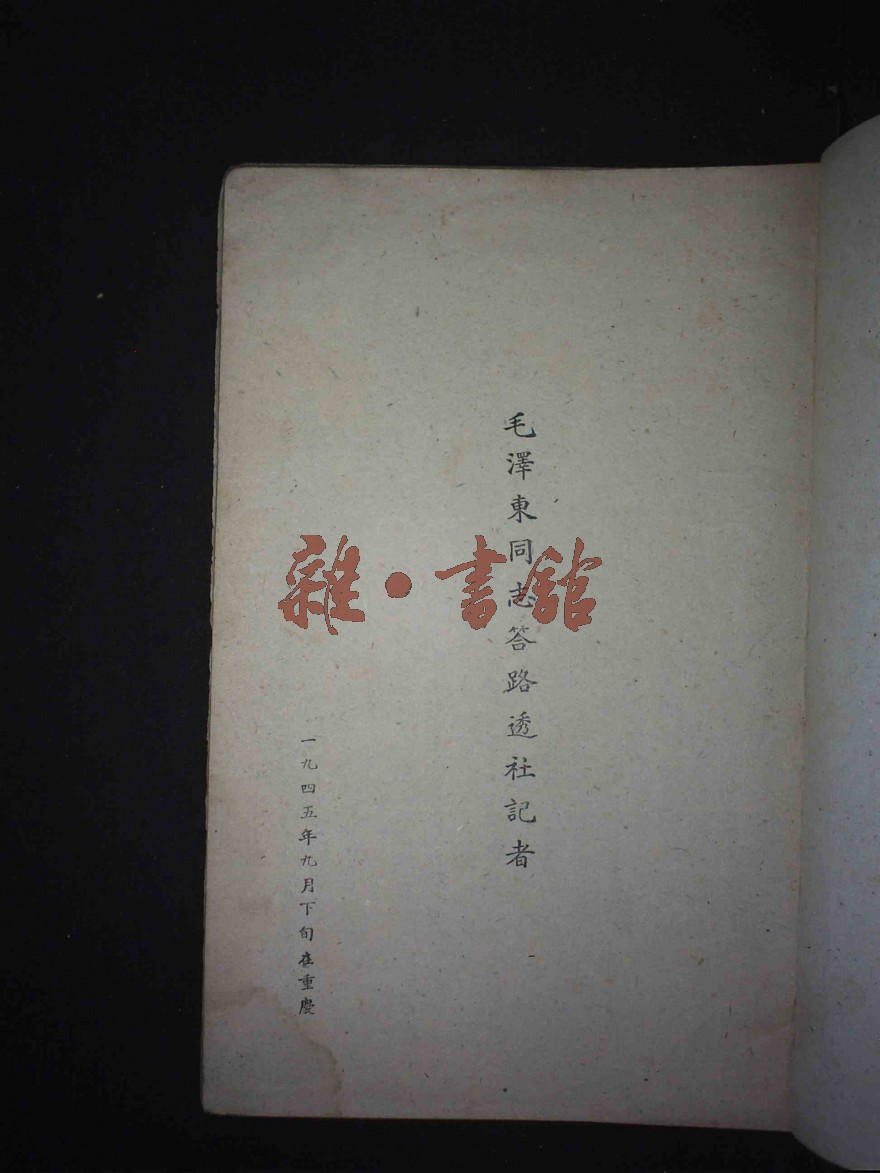 毛澤東同志答路透社記者
一九四五年九月下旬在重慶
雜·書館